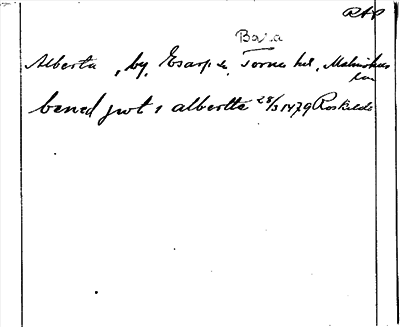 RAP
Bara
Alberta, by, Esarp s., Torna hd, Malmöhus
län
bened jwt i albertta 28/3 1479 Roskilde